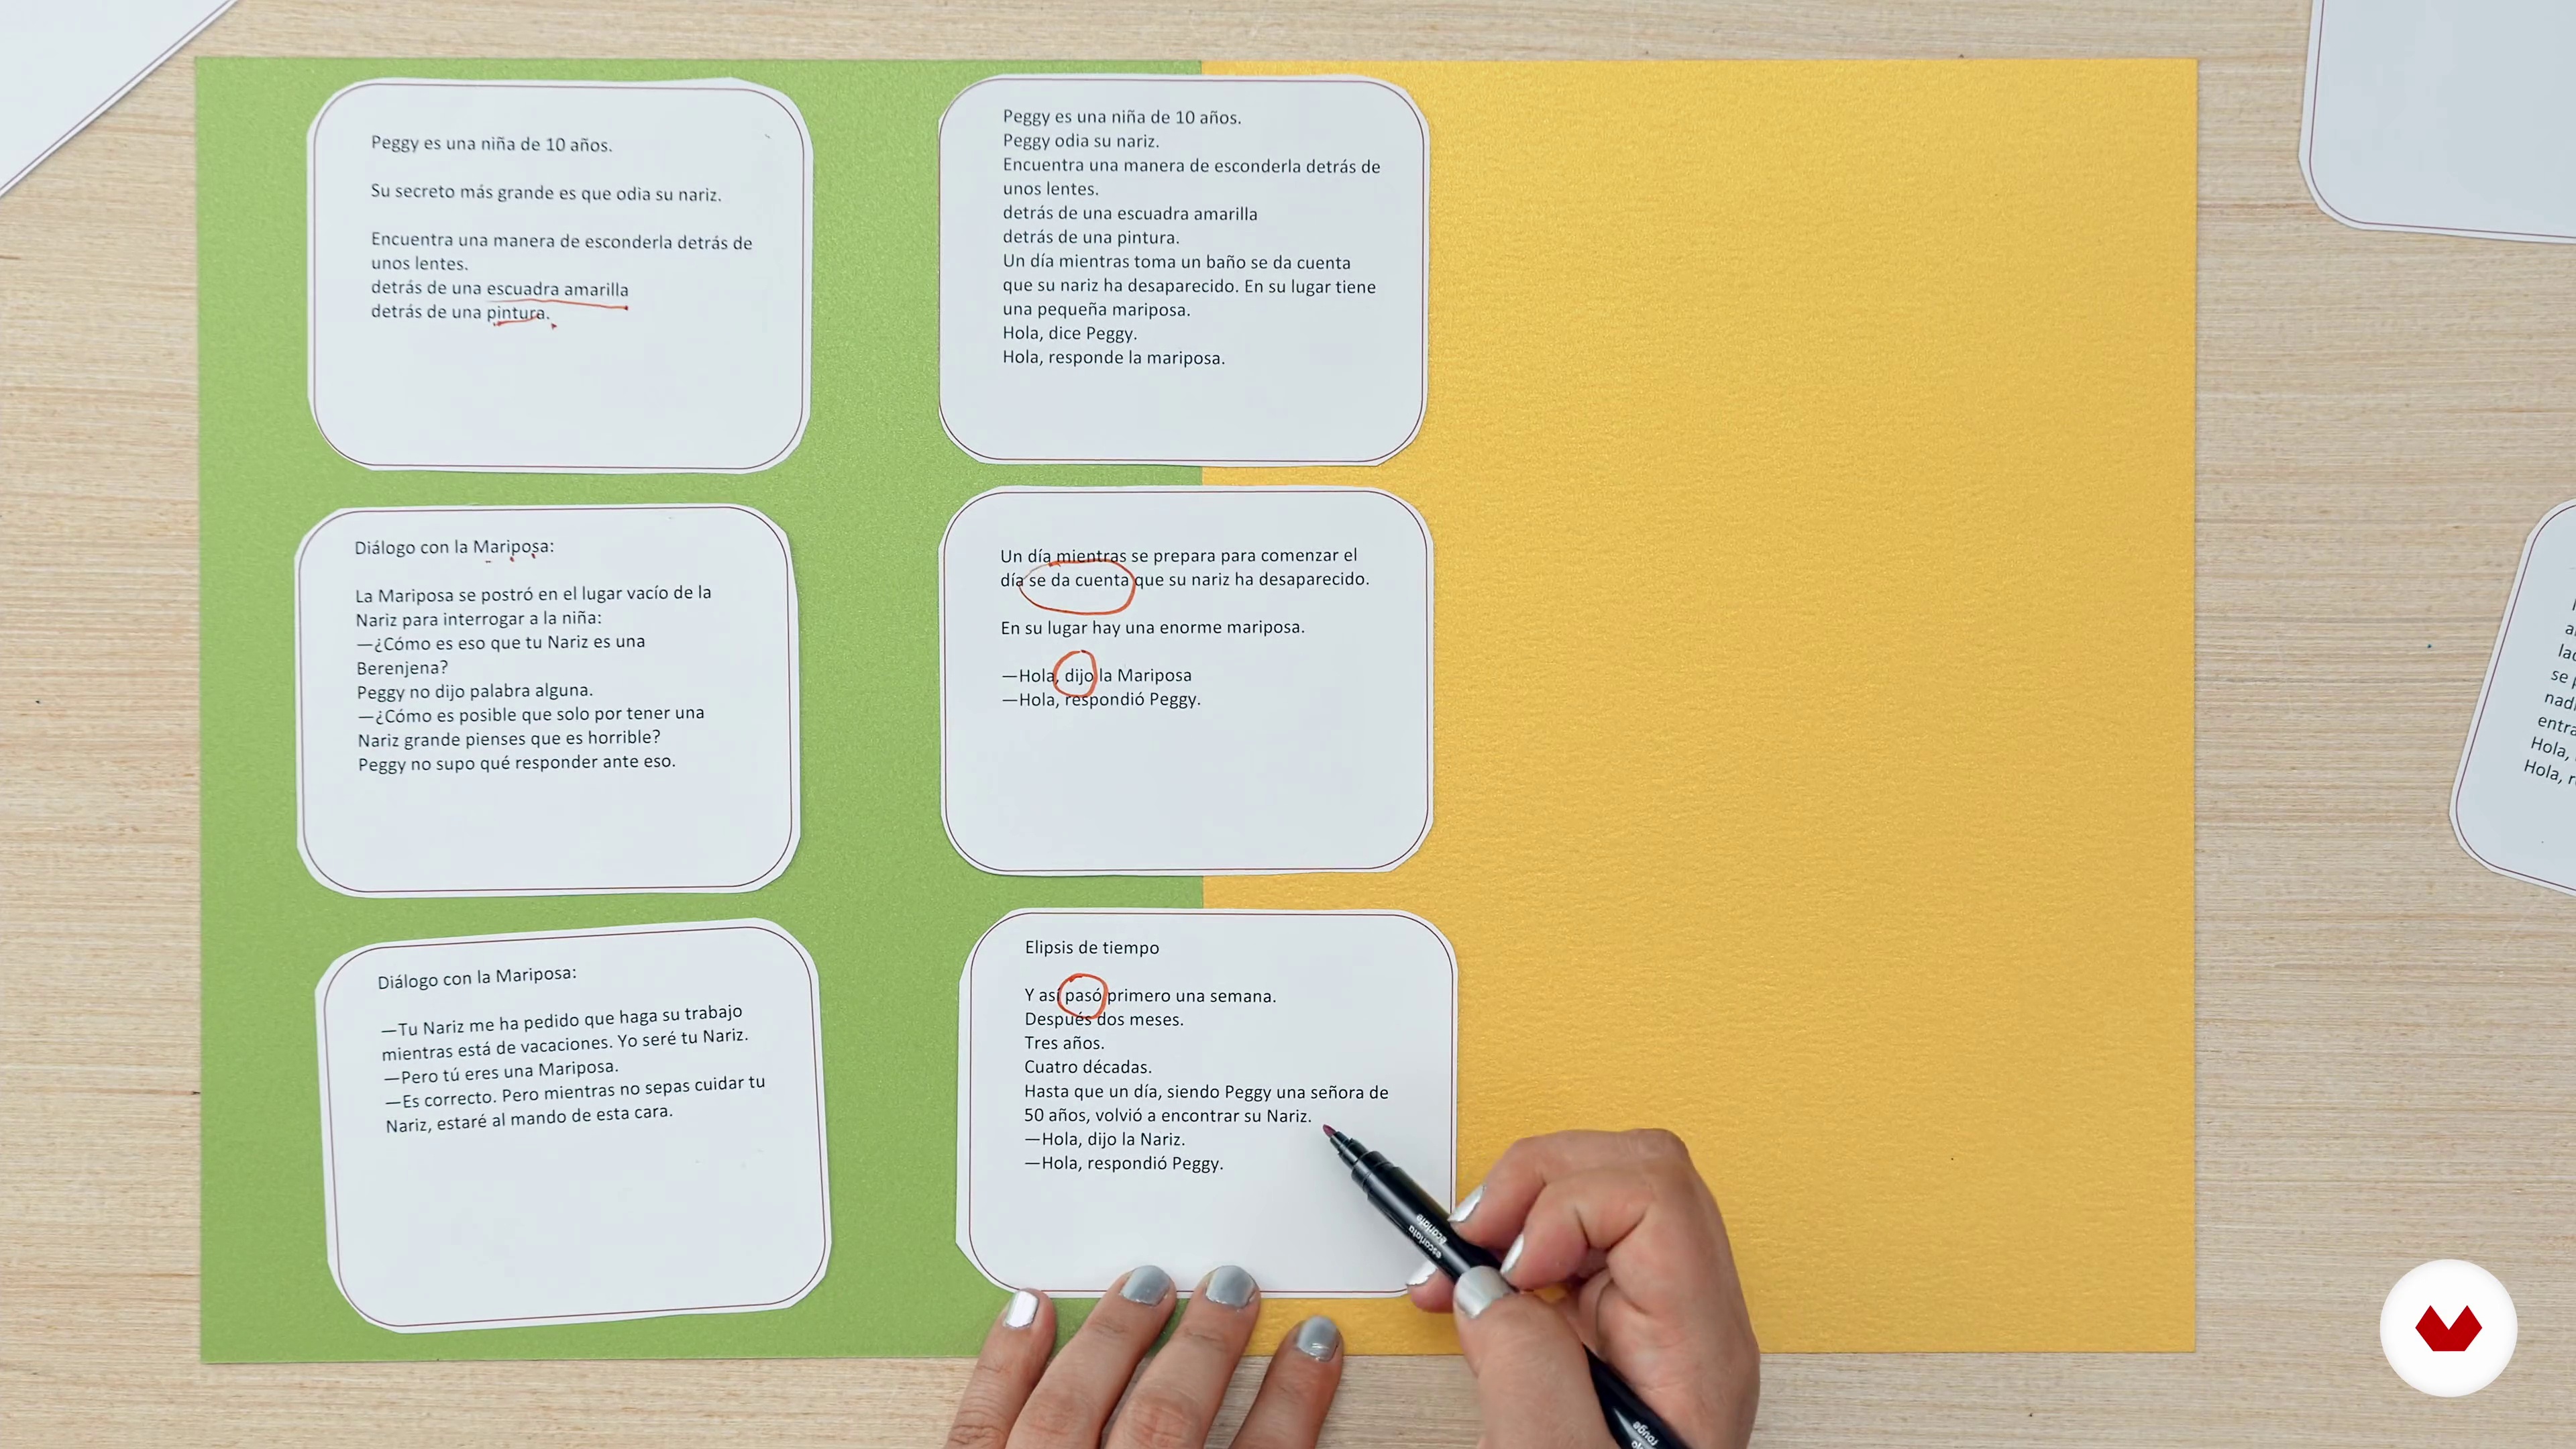 Peggy es una niña de 10 años.
Su secreto más grande es que odia su nariz.
Encuentra una manera de esconderla detrás de
unos lentes.
detrás de una escuadra amarilla
detrás de una pintura.
Peggy es una niña de 10 años.
Peggy odia su nariz.
Encuentra una manera de esconderla detrás de
unos lentes.
detrás de una escuadra amarilla
detrás de una pintura.
Un día mientras toma un baño se da cuenta
que su nariz ha desaparecido. En su lugar tiene
una pequeña mariposa.
Hola, dice Peggy.
Hola, responde la mariposa.
Diálogo con la Mariposa:
La Mariposa se postró en el lugar vacío de la
Nariz para interrogar a la niña:
—¿Cómo es eso que tu Nariz es una
Berenjena?
Peggy no dijo palabra alguna.
—¿Cómo es posible que solo por tener una
Nariz grande pienses que es horrible?
Peggy no supo qué responder ante eso.
Un día mientras se prepara para comenzar el
día se da cuenta que su nariz ha desaparecido.
En su lugar hay una enorme mariposa.
—Hola, dijo la Mariposa
—Hola, respondió Peggy.
Diálogo con la Mariposa:
—Tu Nariz me ha pedido que haga su trabajo
mientras está de vacaciones. Yo seré tu Nariz.
—Pero tú eres una Mariposa.
—Es correcto. Pero mientras no sepas cuidar tu
Nariz, estaré al mando de esta cara.
Elipsis de tiempo
Y así pasó primero una semana.
Después dos meses.
Tres años.
Cuatro décadas.
Hasta que un día, siendo Peggy una señora de
50 años, volvió a encontrar su Nariz.
—Hola, dijo la Nariz.
—Hola, respondió Peggy.
se
Hola,
Hola,
escarlata
escarlata
rouge